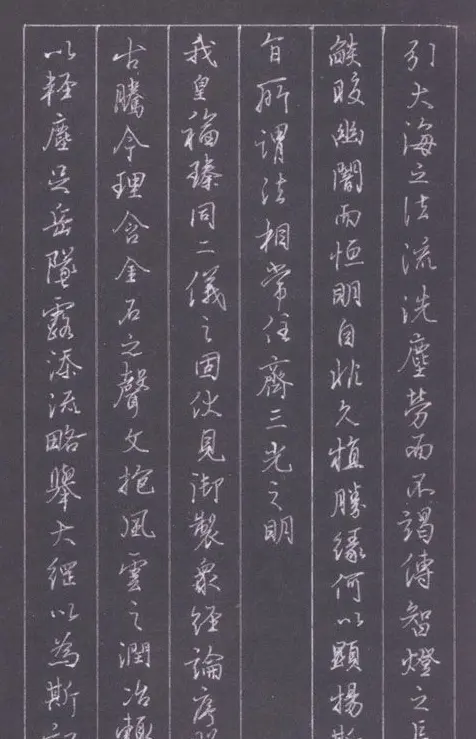 引大海之法流洗塵勞而不竭傳智燈之長
皎幽闇而恒明自非久植勝緣何以顯揚斯
旨所謂法相常住齊三光之明
我皇福臻同二儀之固伏見御製衆經論序照
古騰今理含金石之聲文抱風雲之潤治輒
以輕塵足岳墜露添流略舉大綱以為斯記